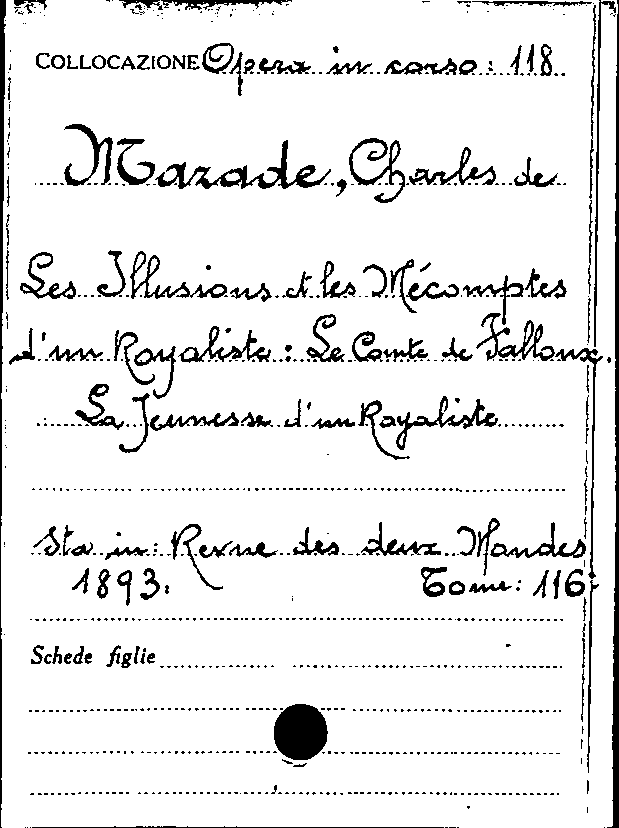 COLLOCAZIONE Opera in corso: 118
Mazade, Charles de
Les Illusions et les Mécomptes
d'un Royaliste: Le Comte de Falloux.
La Jeunesse d'un Royaliste
Sta in: Revue des deux Mondes
1893. Tome: 116°
Schede figlie